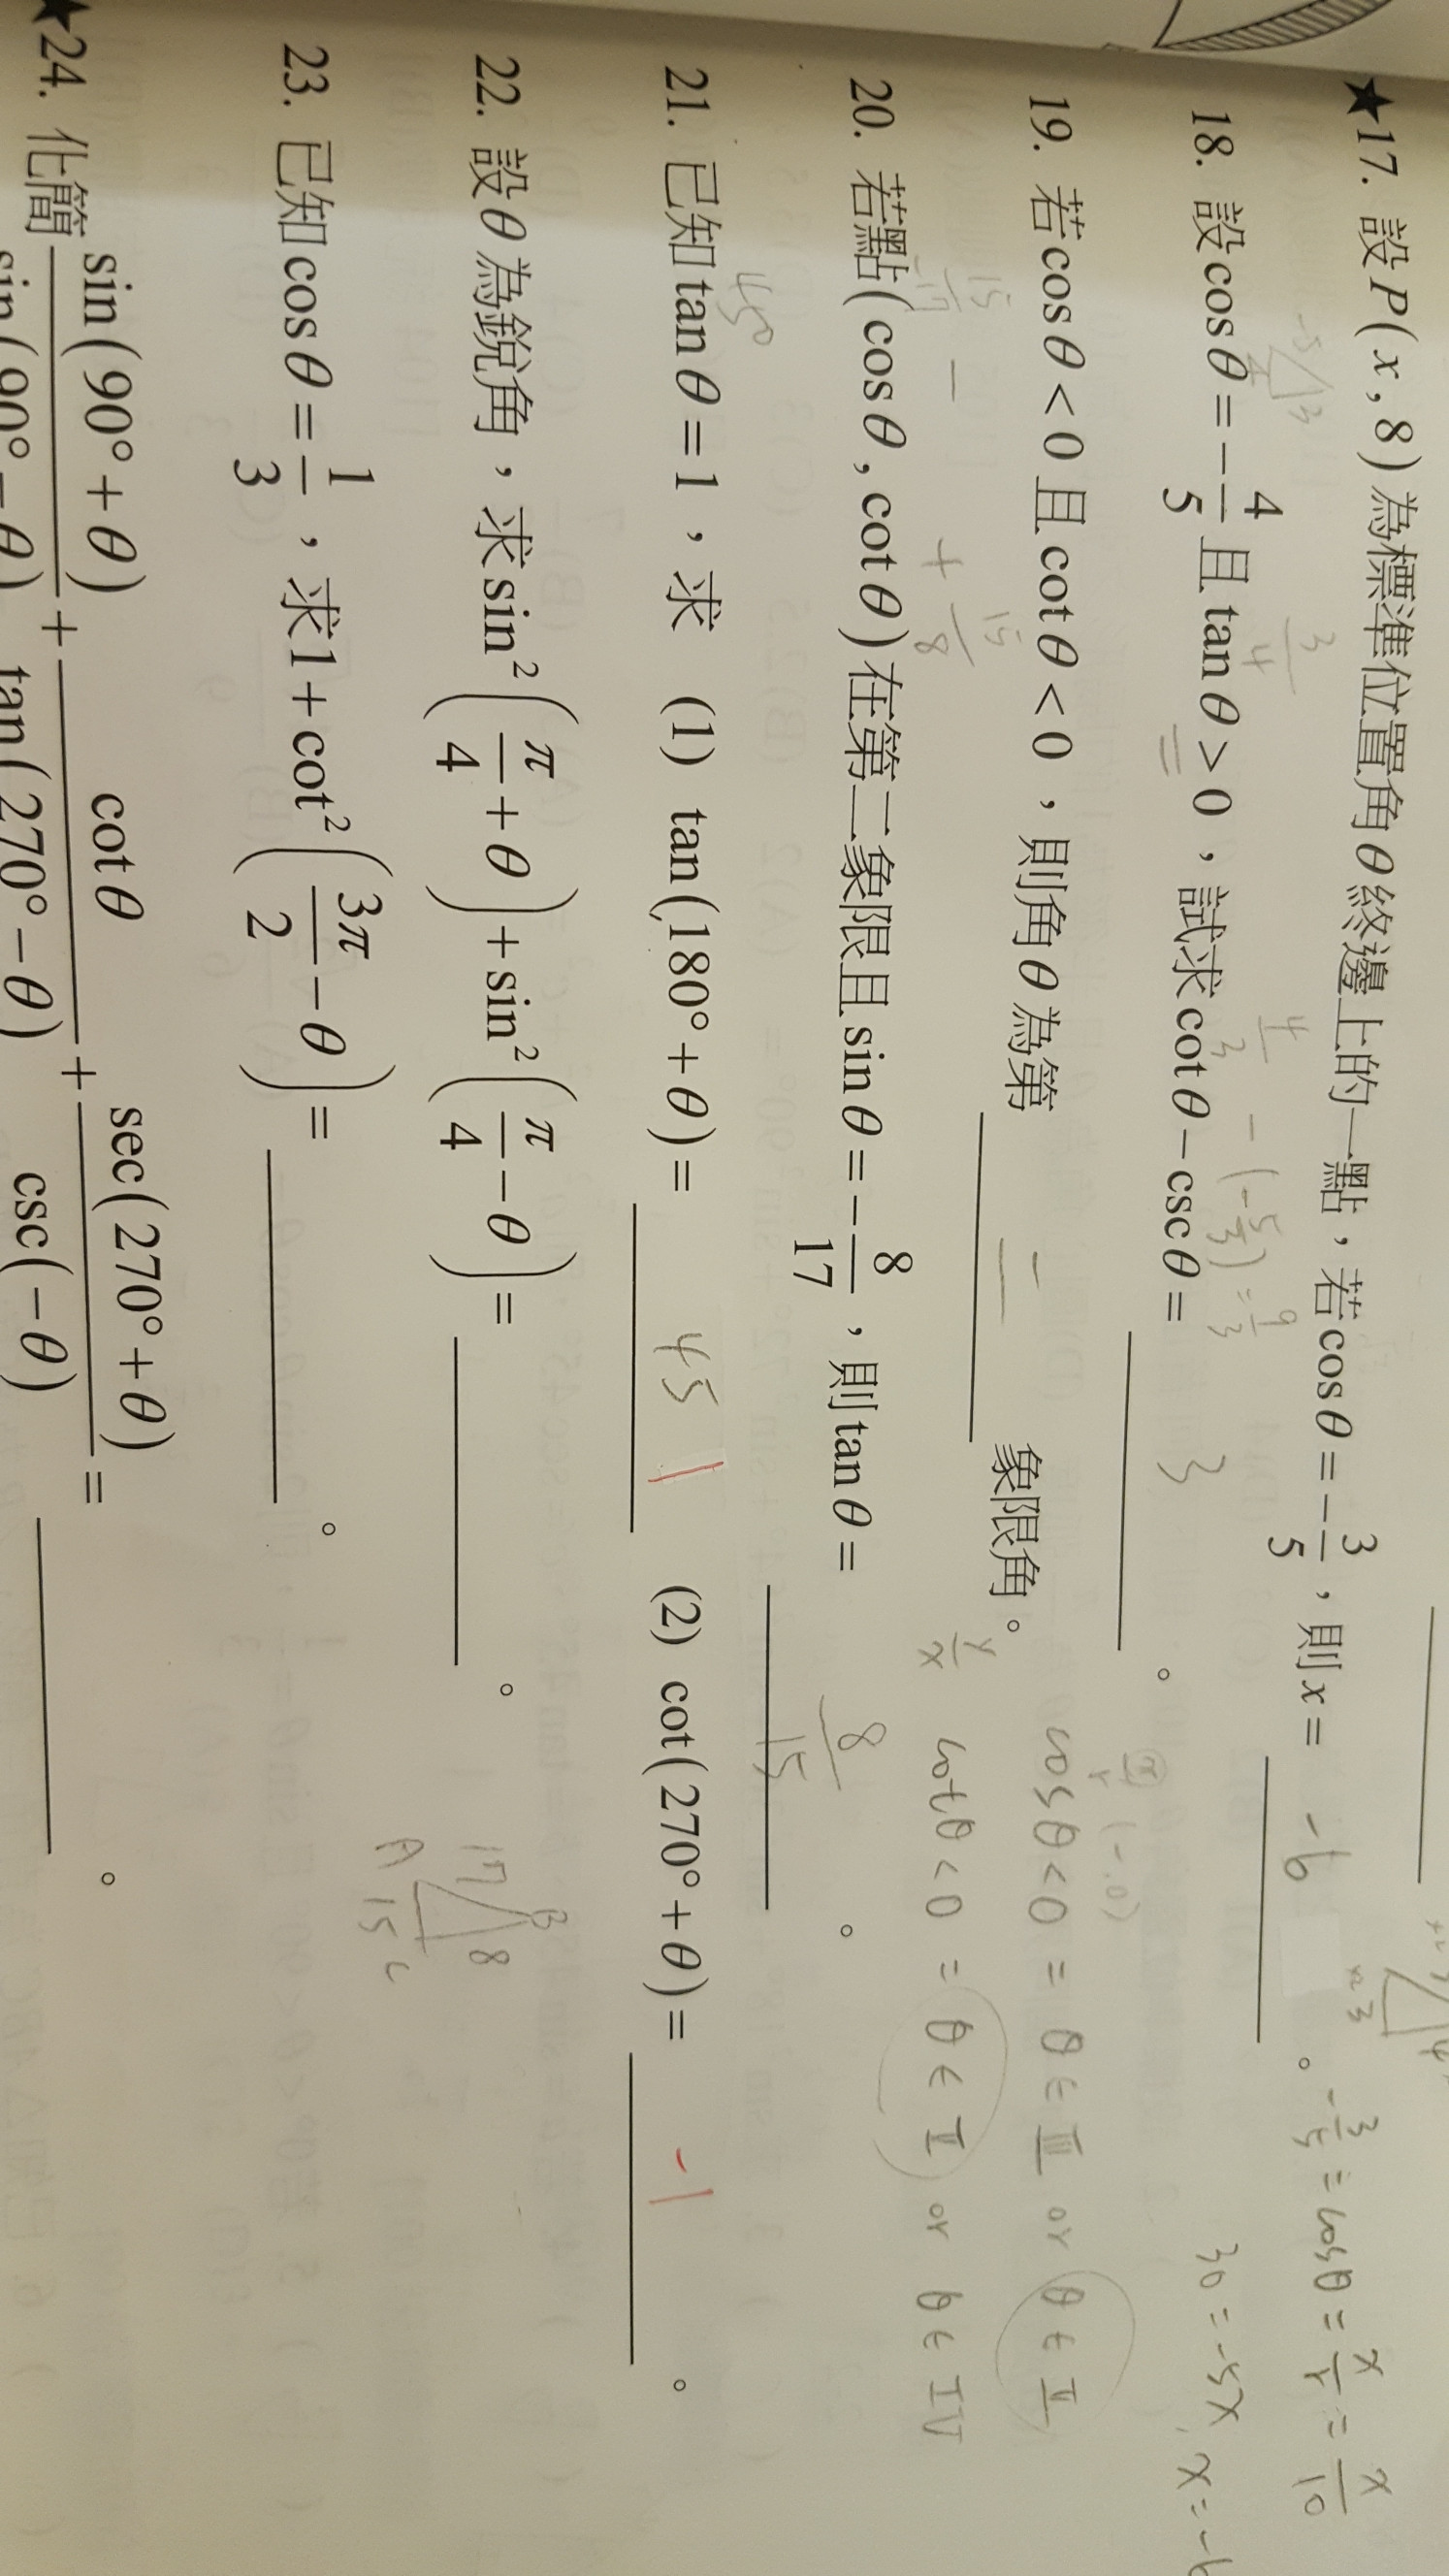 ★17. 設P(x, 8)為標準位置角θ終邊上的一點，若cosθ=-3/5，則x= -6 。 -3/5=cosθ=x/r=x/10
30=-5x, x=-6
18. 設cosθ=-4/5且tanθ>0，試求cotθ-cscθ= 3 。
3/4 4/3 -(-5/3)=9/3
19. 若cosθ<0且cotθ<0，則角θ為第 二 象限角。
cosθ<0 = θ∈III or θ∈II
y/x cotθ<0 = θ∈II or θ∈IV
-15/17 - + 15/8
20. 若點(cosθ, cotθ)在第二象限且sinθ=-8/17，則tanθ= 8/15 。
45°
21. 已知tanθ=1，求 (1) tan(180°+θ)= 45 1 (2) cot(270°+θ)= -1 。
22. 設θ為銳角，求sin²(π/4+θ)+sin²(π/4-θ)= 。
17 B 8
A 15 C
23. 已知cosθ=1/3，求1+cot²(3π/2-θ)= 。
★24. 化簡 sin(90°+θ)/sin(90°-θ) + cotθ/tan(270°-θ) + sec(270°+θ)/csc(-θ) = 。